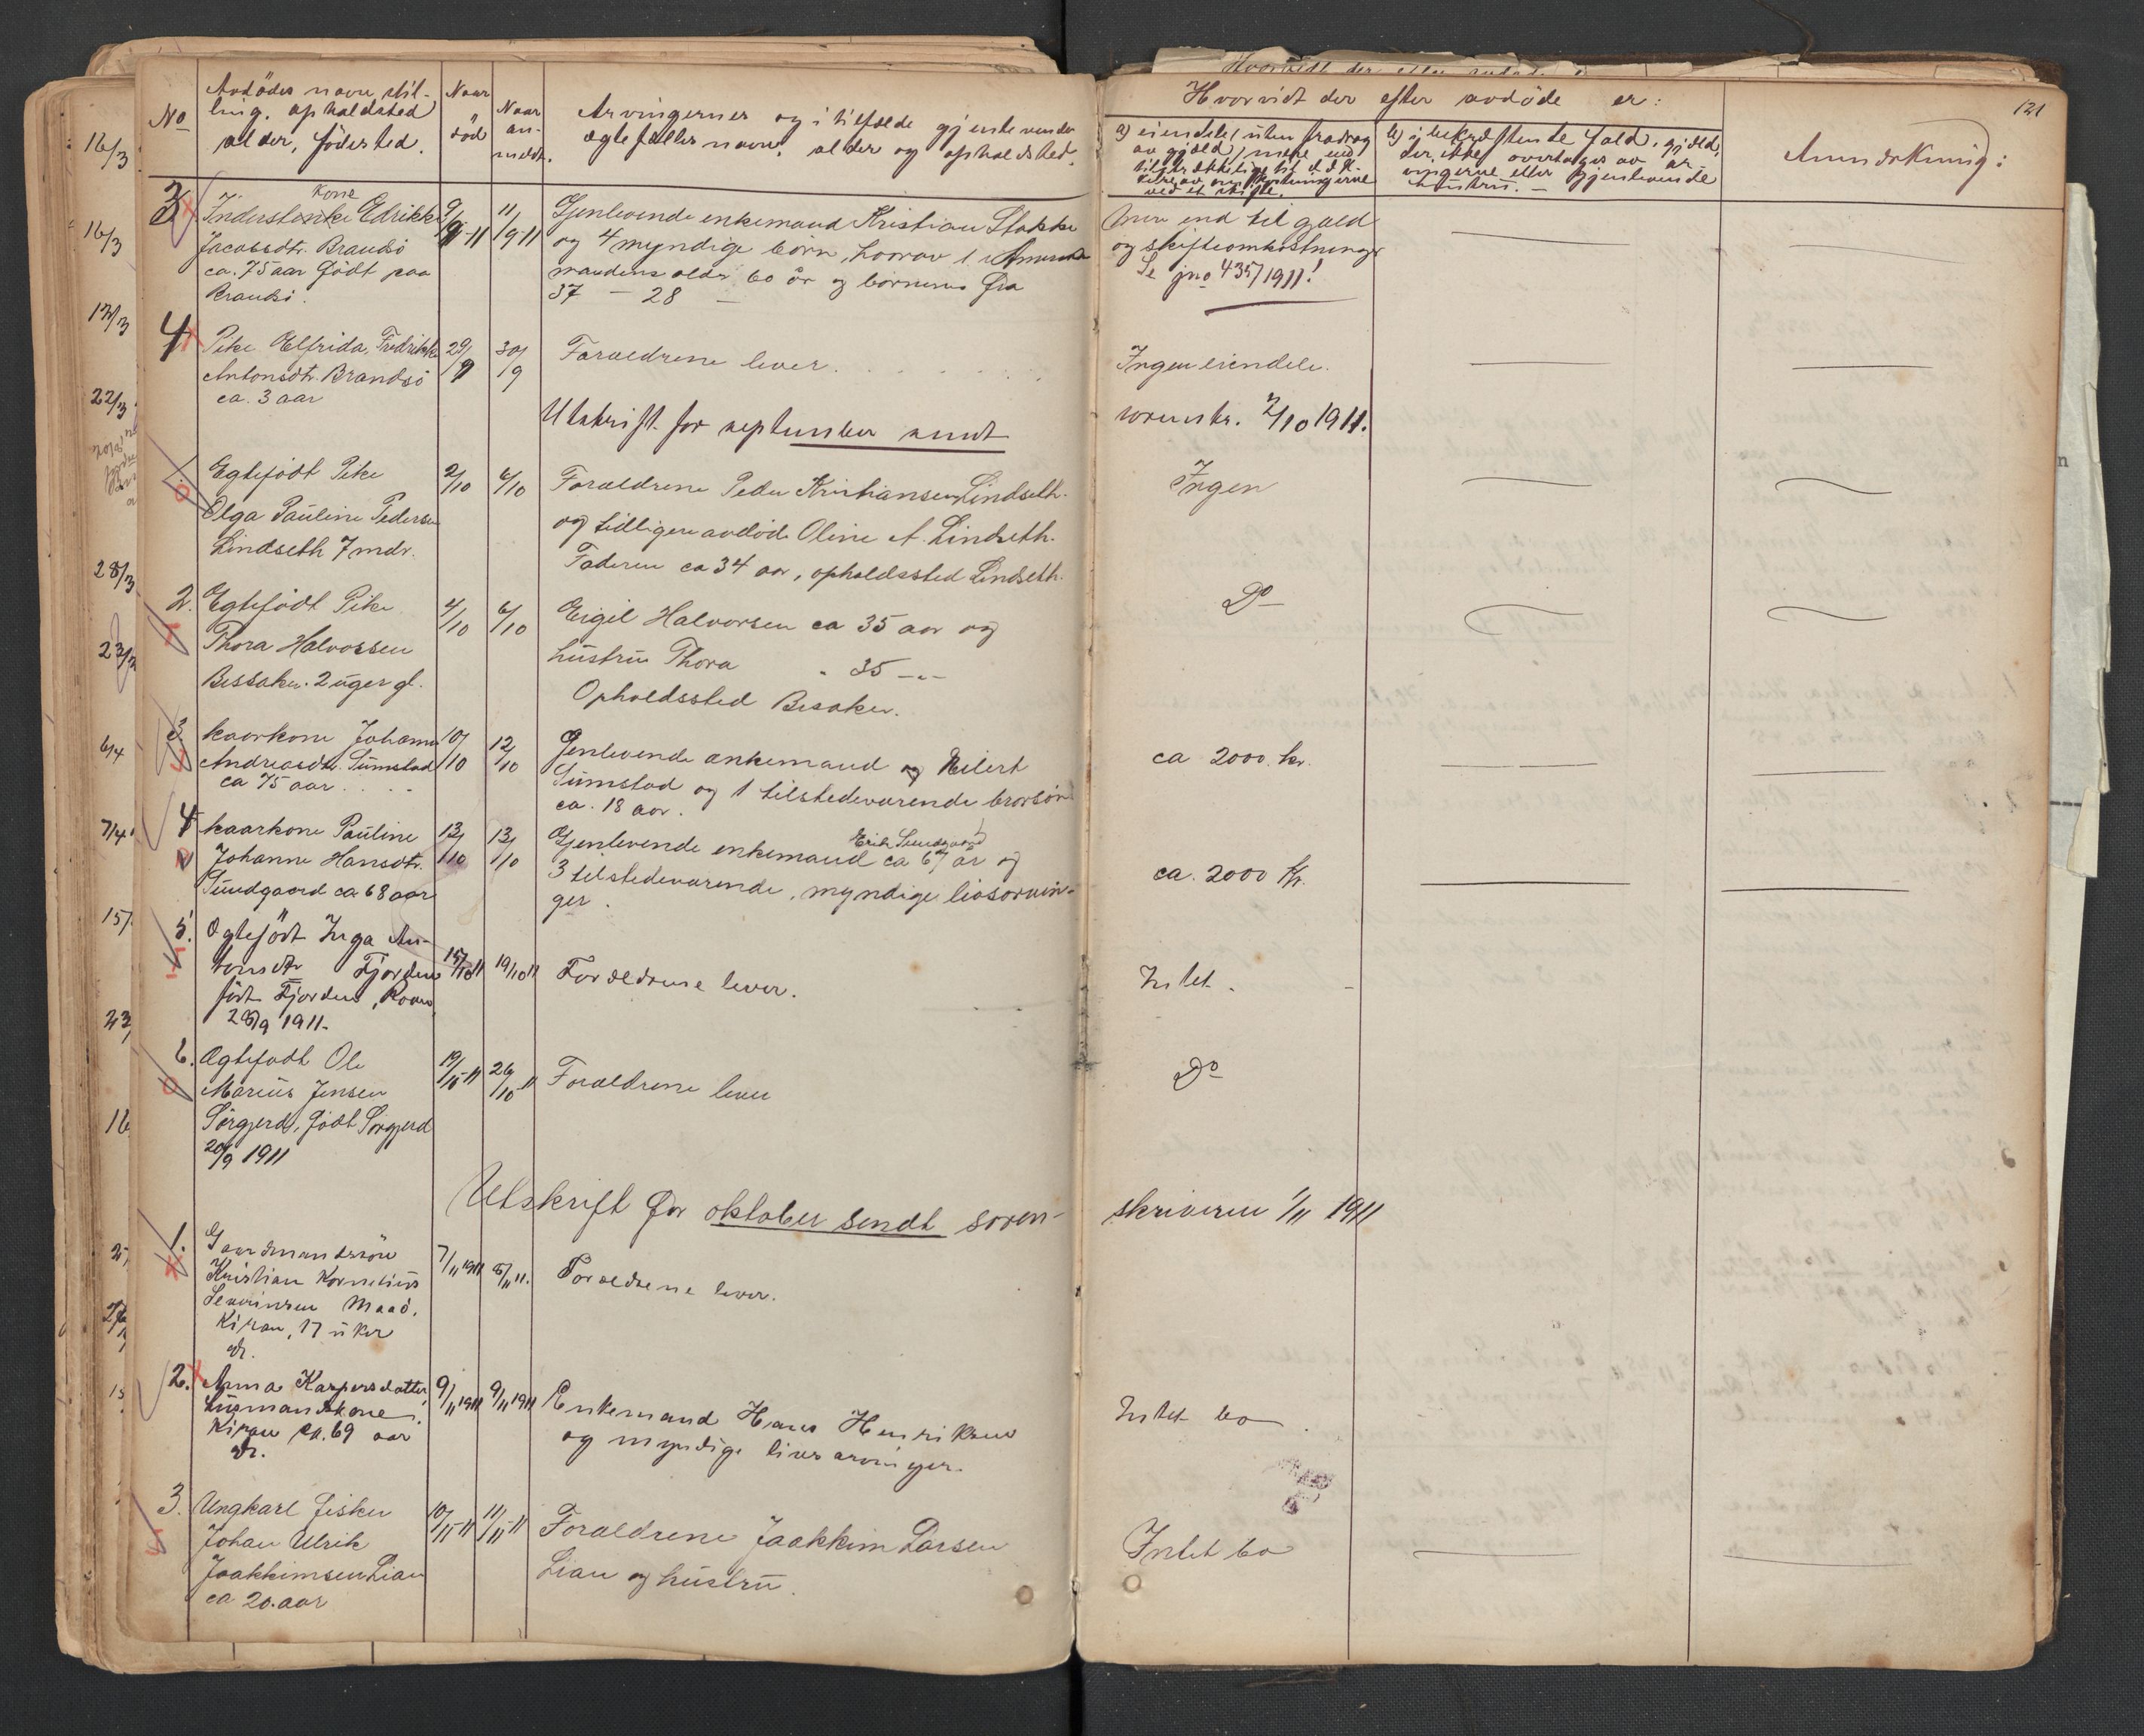 No
Avdödes navn, stil-
ling, opholdsted
alder, födested.
Naar
död
Naar
an-
meldt.
Arvingernes og i tilfælde gjenlevende
ægtefælles navn, alder og opholdsted.
Hvorvidt der efter avdöde er:
a) eiendele (uten fradrag
av gjæld) mere end
tilstrækkelig til
ved et skifte.
b) i bekræftende fald, gjæld,
der ikke overtages av ar-
vingerne eller gjenlevende
hustru. -
Anmerkning:
121
3 Kone
Edrikke
Jacobsdtr. Brandsö
ca. 75 aar födt paa
Brandsö.
9/9-11
11/9-11
Gjenlevende enkemand Kristian Stokke
og 4 myndige börn, hvorav 1 i Amerika
mandens alder 60 år og börnenes fra
37 - 28 -
mere end til gjæld
og skifteomkostninger
Se jno 435/1911!
4 Pike Elfrida Fredrikke
Antonsdtr. Brandsö
ca. 3 aar
29/9
30/9
Forældrene lever.
Ingen eiendele.
Utskrift for september sendt
sorenskr. 2/10 1911.
1. Egtefödt Pike
Olga Pauline Pedersen
Lindseth 7 mdr.
2/10
6/10
Forældrene Peder Kristiansen Lindseth.
og tidligere avdöde Oline A. Lindseth.
Faderen ca 34 aar, opholdssted Lindseth.
Ingen
2. Egtefödt Pike
Thora Halvorsen
Bessaker. 2 uger gl.
4/10
6/10
Eigil Halvorsen ca 35 aar og
hustru Thora " 35 -"-
Opholdssted Besaker.
Do
3 kaarkone Johanna
Andreasdtr. Sumstad
ca 75 aar
10/10
12/10
Gjenlevende enkemand og Eilert
Sumstad og 1 tilstedeværende brorsön
ca. 18 aar.
ca 2000 kr.
4 kaarkone Pauline
Johanne Hansdtr.
Sundgaard ca 68 aar
13/10
13/10
Erik Sundgaard
Gjenlevende enkemand ca 67 år og
3 tilstedeværende, myndige livsarvin-
ger.
ca. 2000 kr.
5. Ogtefödt Inga An-
tonsdtr Fjorden
födt Fjorden, Roan
28/9 1911.
15/10 11
19/10 11
Forældrene lever.
Intet.
6. Ægtefödt Ole
Marius Jensen
Sörgjerd, födt Sörgjerd
20/9 1911
19/10-11
26/10-11
Forældrene lever
Do
Utskrift for oktober sendt soren-
skriveren 1/11 1911
1. Gaardmandssön
Kristian Kornelius
Severinsen Maaö,
Kiran, 17 uker
gl.
7/11 1911
8/11 11.
Forældrene lever.
2. Anna Kaspersdatter,
husmandskone,
Kiran ca. 69 aar
gl.
9/11 1911
9/11 1911
Enkemand Hans Henriksen
og myndige livsarvinger.
Intet bo
3. Ungkarl fisker
Johan Ulrik
Joakkimsen Lian
ca 20 aar
10/11-11
11/11-11
Forældrene Joakkim Larsen
Lian og hustru.
Intet bo
16/3
16/3
22/3
28/3
6/4
7/4